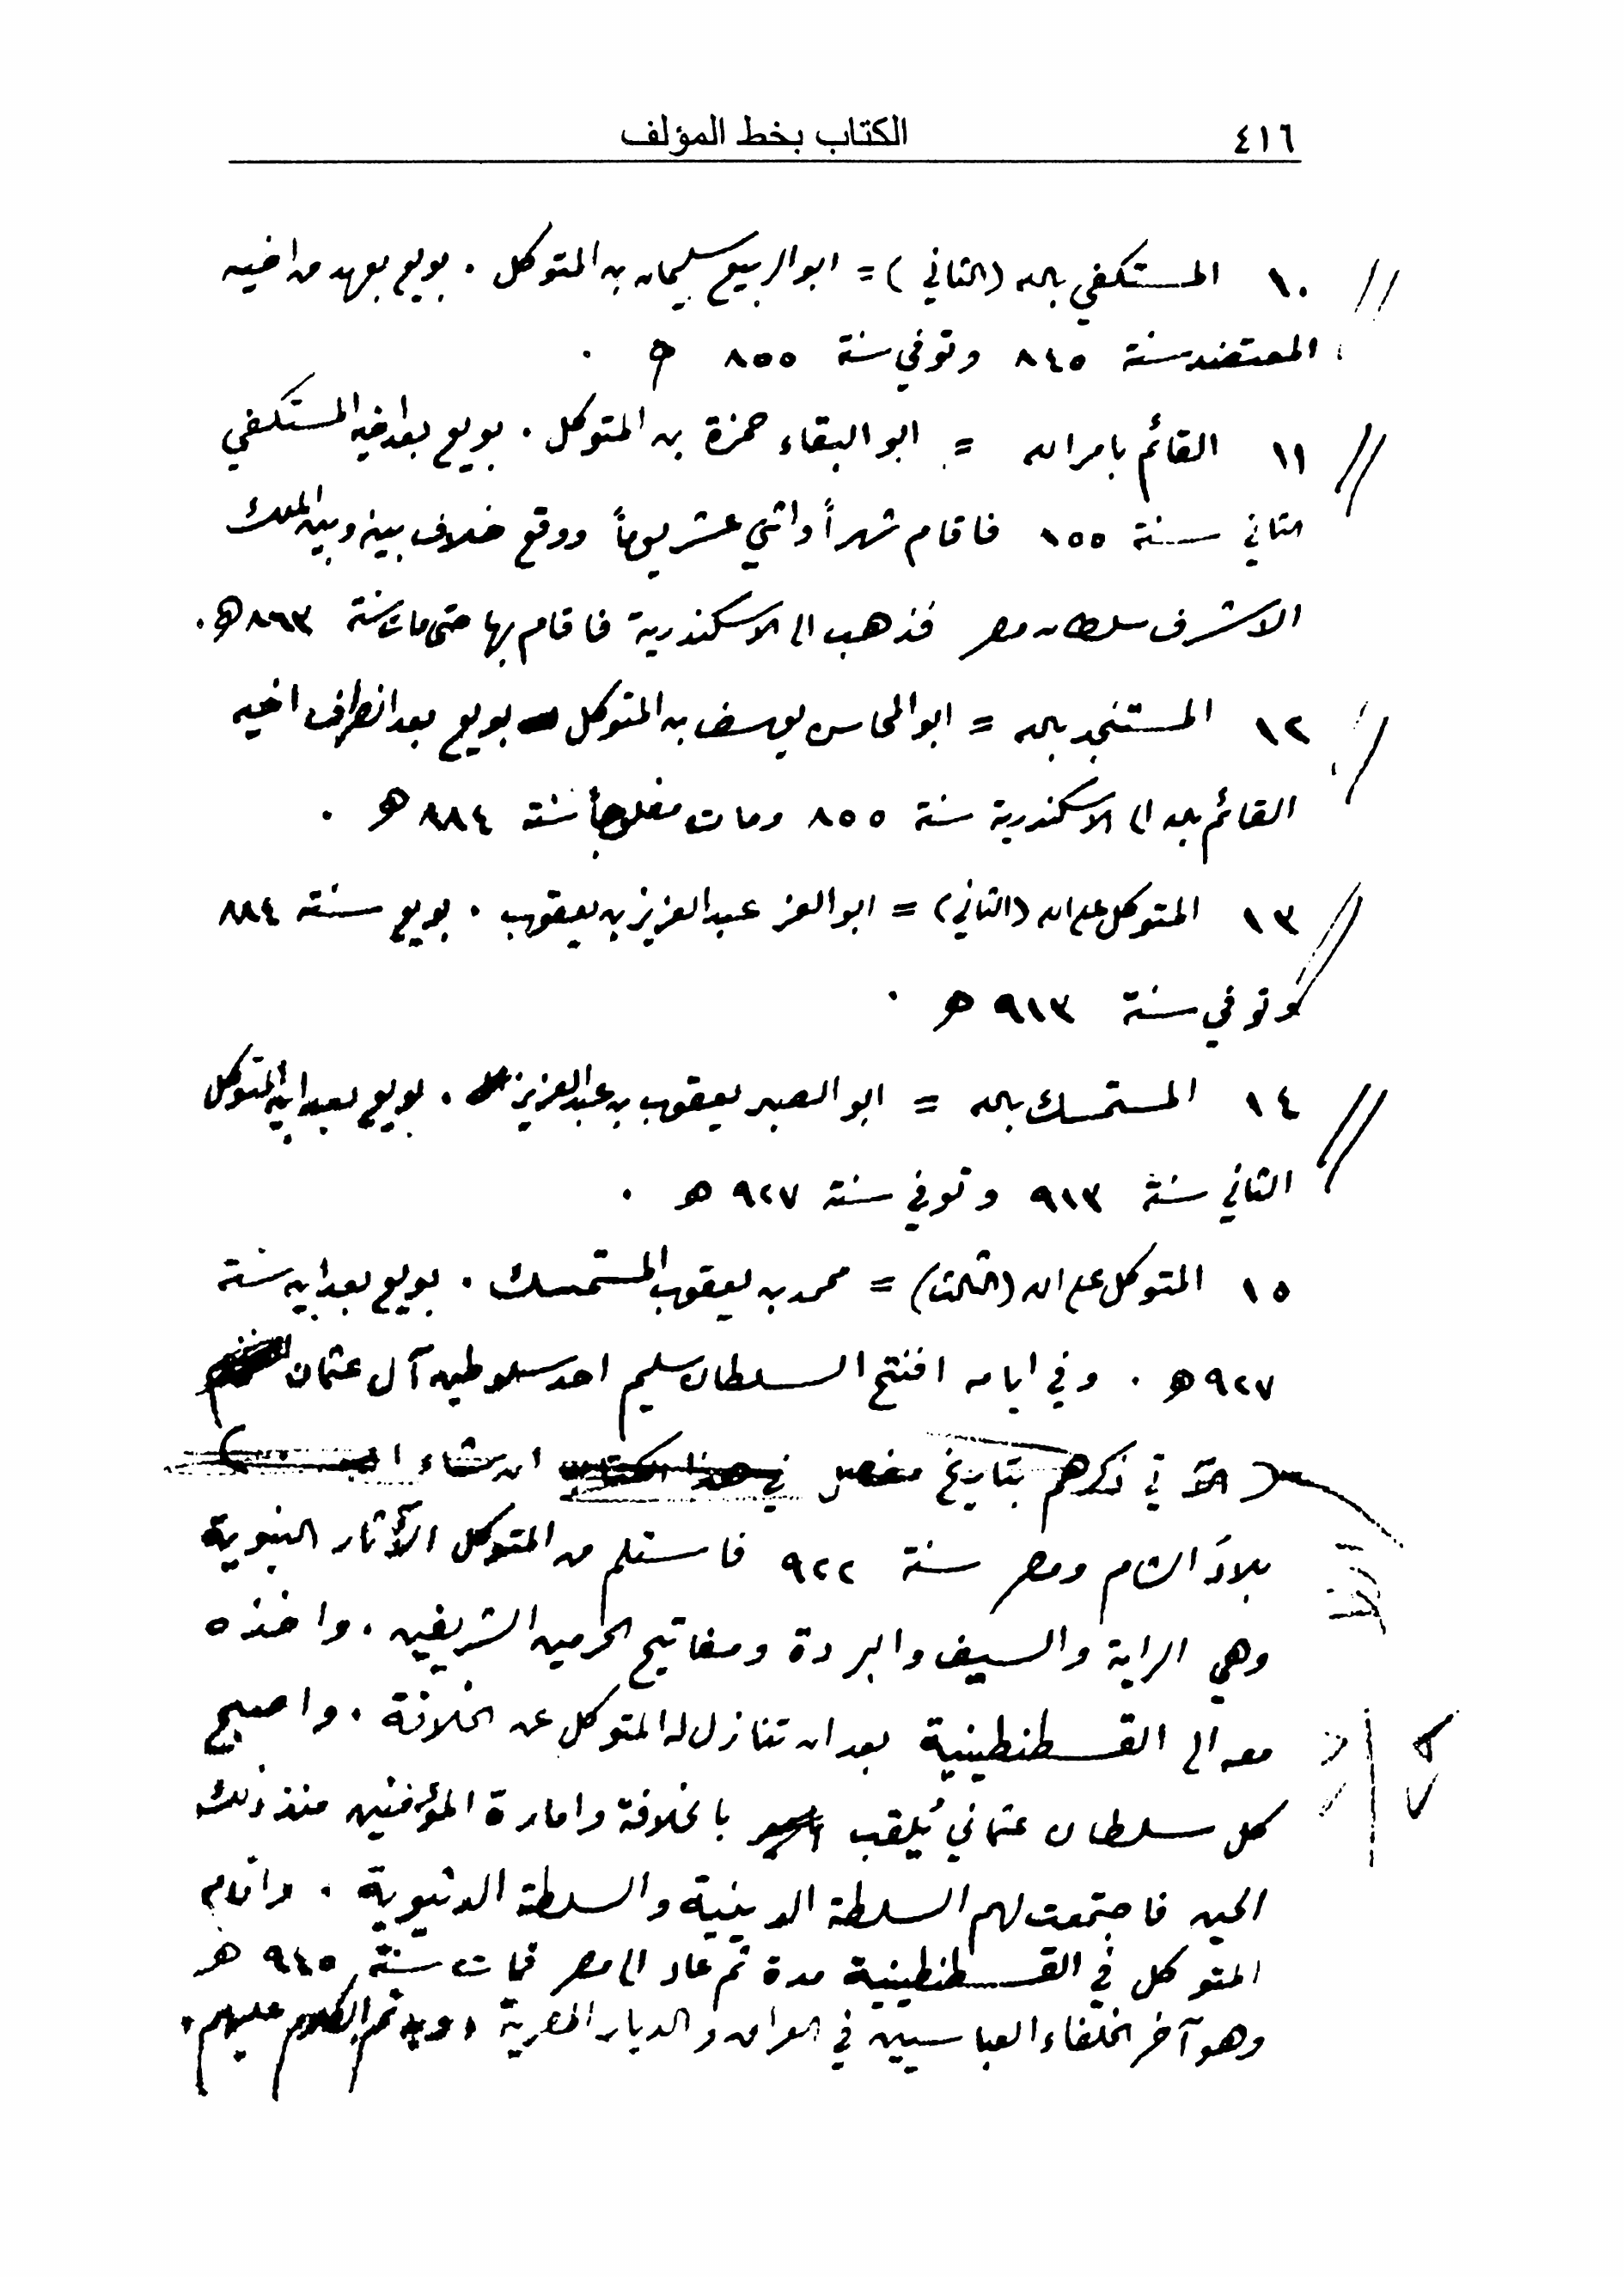 ٤١٦ الكتاب بخط المؤلف
١٠ المستكفي بالله (الثاني) = ابو الربيع سليمان بن المتوكل . بويع بعهد من اخيه
المعتضد سنة ٨٤٥ وتوفي سنة ٨٥٥ ه .
١١ القائم بامر الله = ابو البقاء حمزة بن المتوكل . بويع بعد اخيه المستكفي
الثاني سنة ٨٥٥ فاقام شهراً واثني عشر يوماً ووقع خلاف بينه وبين الملك
الاشرف سلطان مصر فذهب الى الاسكندرية فاقام بها حتى مات سنة ٨٦٣ ه .
١٢ المستنجد بالله = ابو المحاسن يوسف بن المتوكل بويع بعد انصراف اخيه
القائم بالله الى الاسكندرية سنة ٨٥٥ ومات مفلوجاً سنة ٨٨٤ ه .
١٣ المتوكل على الله (الثاني) = ابو العز عبد العزيز بن يعقوب . بويع سنة ٨٨٤
وتوفي سنة ٩١٣ ه .
١٤ المستمسك بالله = ابو الصبر يعقوب بن عبد العزيز . بويع بعد ابيه المتوكل
الثاني سنة ٩١٣ وتوفي سنة ٩٢٧ ه .
١٥ المتوكل على الله (الثالث) = محمد بن يعقوب المستمسك . بويع بعد ابيه سنة
٩٢٧ ه . وفي ايامه افتتح السلطان سليم احد سلاطين آل عثمان
(الآتي ذكرهم بتاريخ مفصل في هذا الكتاب ان شاء الله)
بلادَ الشام ومصر سنة ٩٢٢ فاستلم من المتوكل الآثار النبوية
وهي الراية والسيف والبردة ومفاتيح الحرمين الشريفين . واخذه
معه الى القسطنطينية بعد ان تنازل له المتوكل عن الخلافة . واصبح
كل سلطان عثماني يُلقب بالخلافة وامارة المؤمنين منذ ذلك
الحين فاجتمعت لهم السلطة الدينية والسلطة الدنيوية . واقام
المتوكل في القسطنطينية مدة ثم عاد الى مصر فمات سنة ٩٤٥ ه
وهو آخر الخلفاء العباسيين في العراق والديار المصرية . وبه تم الكلام عليهم .